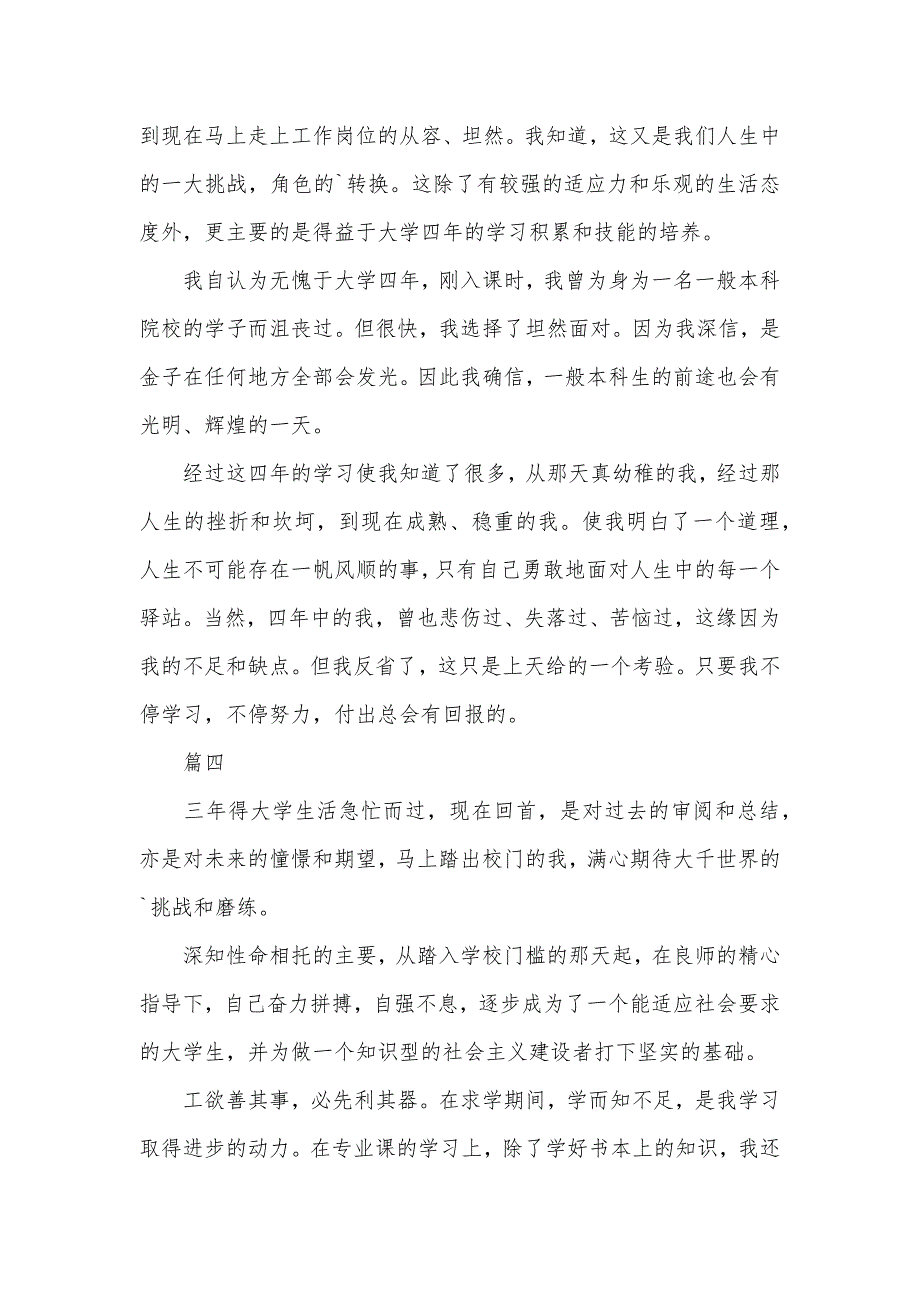 到现在马上走上工作岗位的从容、坦然。我知道，这又是我们人生中
的一大挑战，角色的`转换。这除了有较强的适应力和乐观的生活态
度外，更主要的是得益于大学四年的学习积累和技能的培养。
我自认为无愧于大学四年，刚入课时，我曾为身为一名一般本科
院校的学子而沮丧过。但很快，我选择了坦然面对。因为我深信，是
金子在任何地方全部会发光。因此我确信，一般本科生的前途也会有
光明、辉煌的一天。
经过这四年的学习使我知道了很多，从那天真幼稚的我，经过那
人生的挫折和坎坷，到现在成熟、稳重的我。使我明白了一个道理，
人生不可能存在一帆风顺的事，只有自己勇敢地面对人生中的每一个
驿站。当然，四年中的我，曾也悲伤过、失落过、苦恼过，这缘因为
我的不足和缺点。但我反省了，这只是上天给的一个考验。只要我不
停学习，不停努力，付出总会有回报的。
篇四
三年得大学生活急忙而过，现在回首，是对过去的审阅和总结，
亦是对未来的憧憬和期望，马上踏出校门的我，满心期待大千世界的
`挑战和磨练。
深知性命相托的主要，从踏入学校门槛的那天起，在良师的精心
指导下，自己奋力拼搏，自强不息，逐步成为了一个能适应社会要求
的大学生，并为做一个知识型的社会主义建设者打下坚实的基础。
工欲善其事，必先利其器。在求学期间，学而知不足，是我学习
取得进步的动力。在专业课的学习上，除了学好书本上的知识，我还